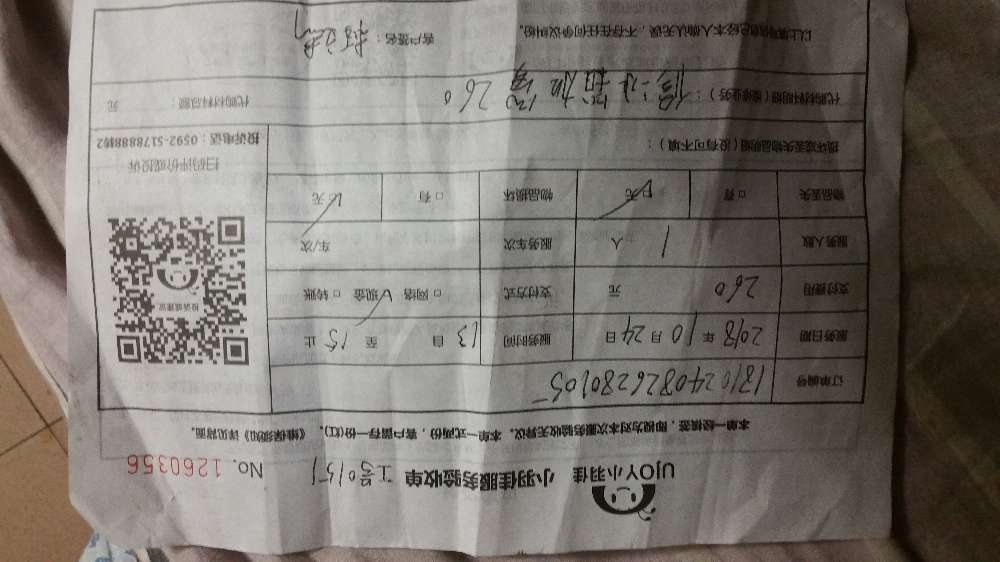 UJOY小羽佳 小羽佳服务验收单 工号0151 No. 1260356
本单一经核签，即视为对本次服务验收无异议。本单一式两份，客户留存一份(红)。《维保须知》详见背面。
订单编号 1810240826280105
服务日期 2018年10月24日 服务时间 自13至15止
支付费用 260元 支付方式 □网络 ☑现金 □转账
投诉或建议
服务人数 1人 服务车次 车/次
物品丢失 □有 ☑无 物品损坏 □有 ☑无
损坏或丢失物品明细（没有可不填）：
扫码评价或投诉
投诉电话：0592-5178888转2
代购材料明细（限维修业务）： 260 代购材料总额： 元
以上填写信息已经本人确认无误，不存在任何争议纠纷。 客户签名：